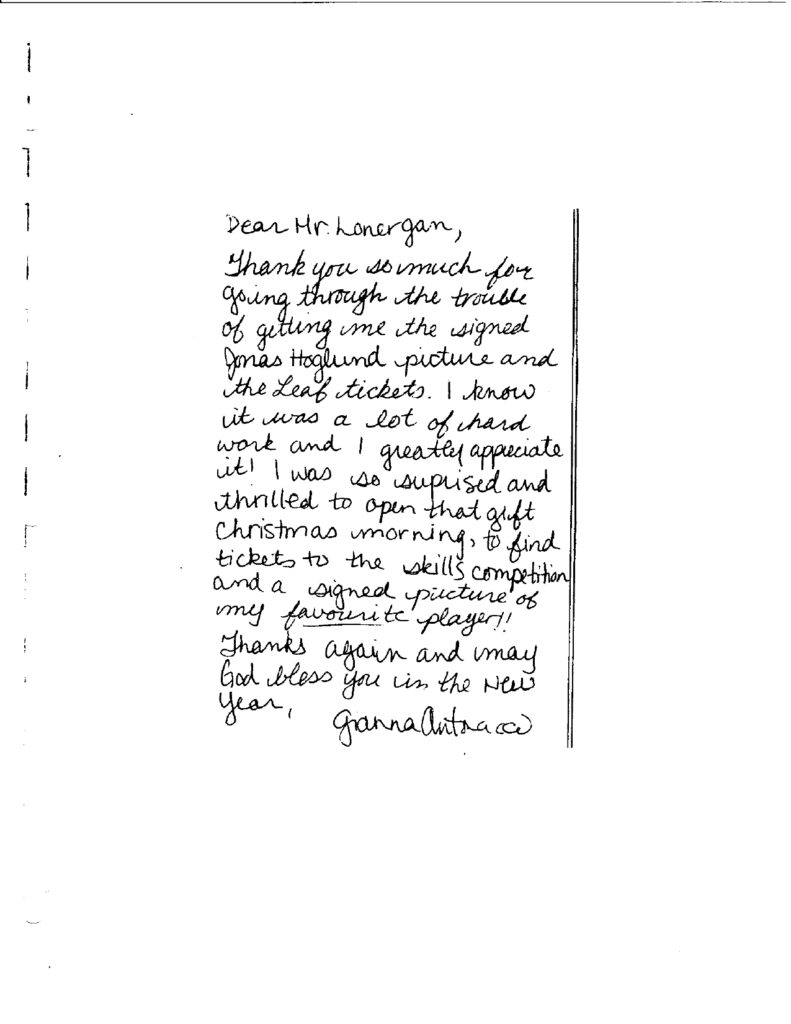 Dear Mr. Lonergan,
Thank you so much for
going through the trouble
of getting me the signed
Jonas Hoglund picture and
the Leaf tickets. I know
it was a lot of hard
work and I greatly appreciate
it! I was so suprised and
thrilled to open that gift
Christmas morning, to find
tickets to the skills competition
and a signed picture of
my favourite player!!
Thanks again and may
God bless you in the New
Year,
Gianna